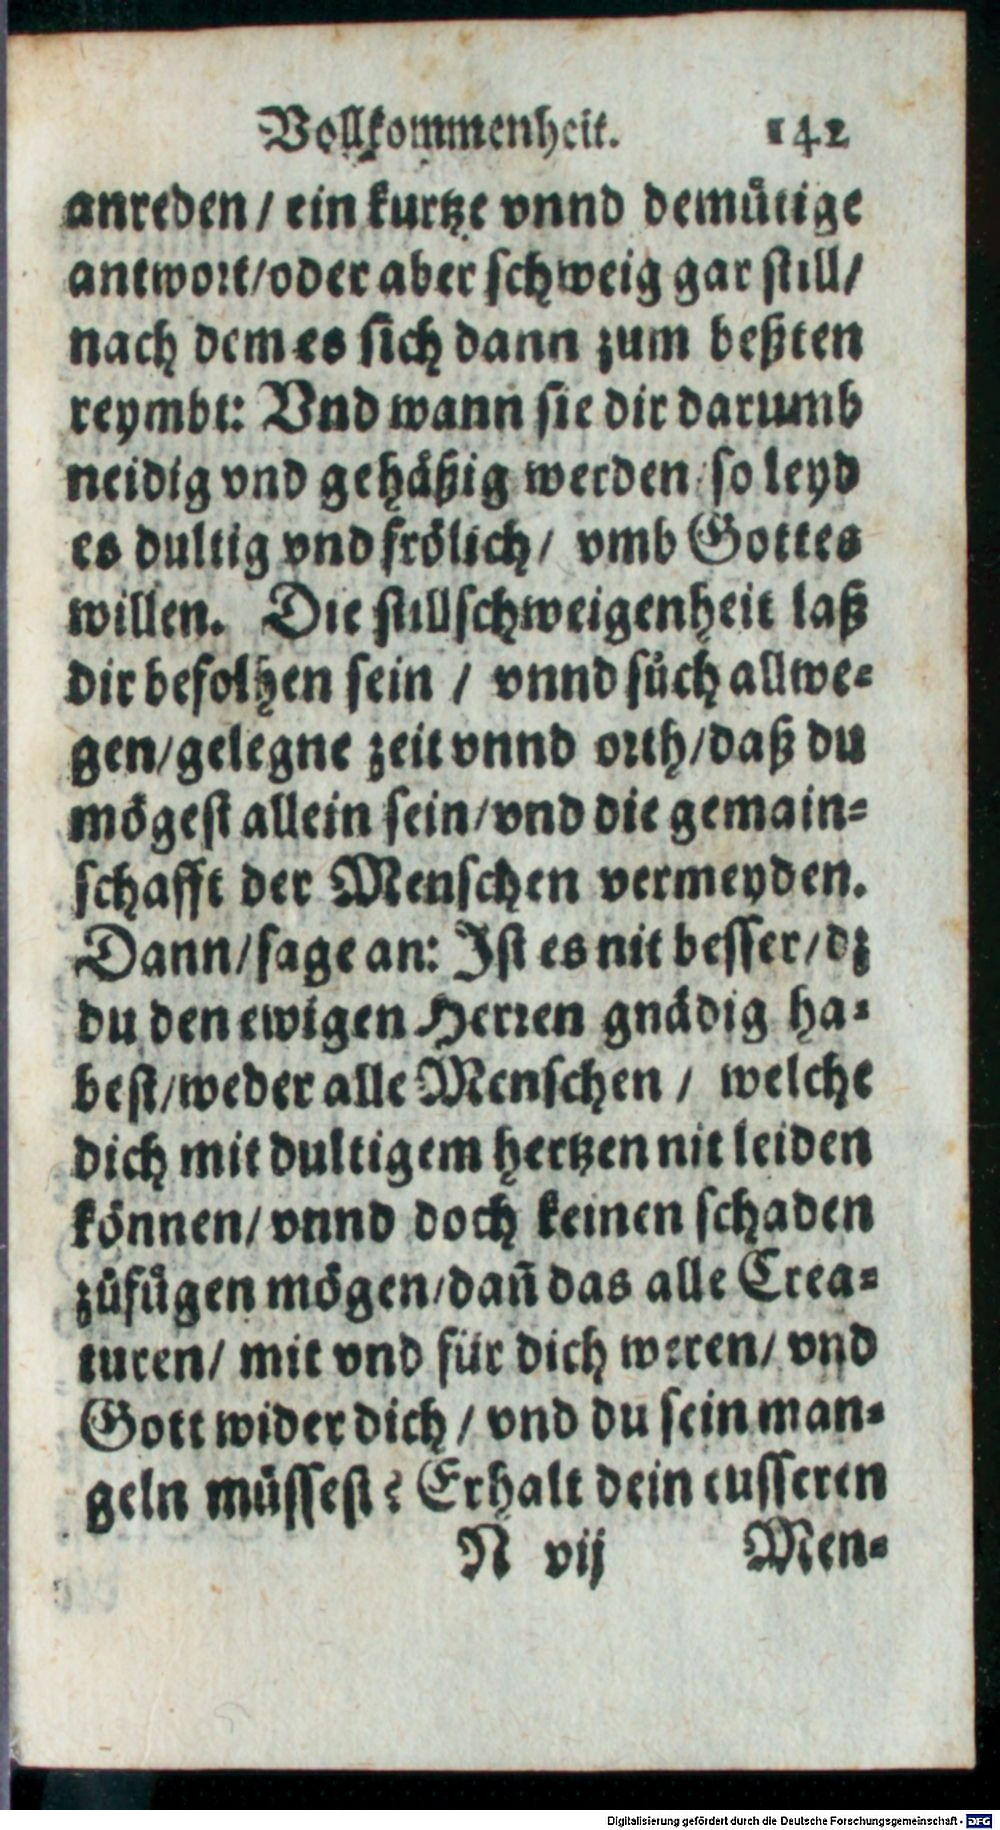 Vollkommenheit. 142
anreden / ein kurtze vnnd demuͤtige
antwort/oder aber schweig gar still/
nach dem es sich dann zum beßten
reymbt: Vnd wann sie dir darumb
neidig vnd gehaͤßig werden / so leyd
es dultig vnd froͤlich / vmb Gottes
willen. Die stillschweigenheit laß
dir befolhen sein / vnnd suͤch allwe-
gen/gelegne zeit vnnd orth/daß du
moͤgest allein sein/vnd die gemain-
schafft der Menschen vermeyden.
Dann/sage an: Ist es nit besser/dz
du den ewigen Herren gnaͤdig ha-
best/weder alle Menschen / welche
dich mit dultigem hertzen nit leiden
koͤnnen/vnnd doch keinen schaden
zůfuͤgen moͤgen/dañ das alle Crea-
turen/ mit vnd fuͤr dich weren/ vnd
Gott wider dich / vnd du sein man-
geln muͤssest? Erhalt dein eusseren
N vij Men-
Digitalisierung gefördert durch die Deutsche Forschungsgemeinschaft - DFG